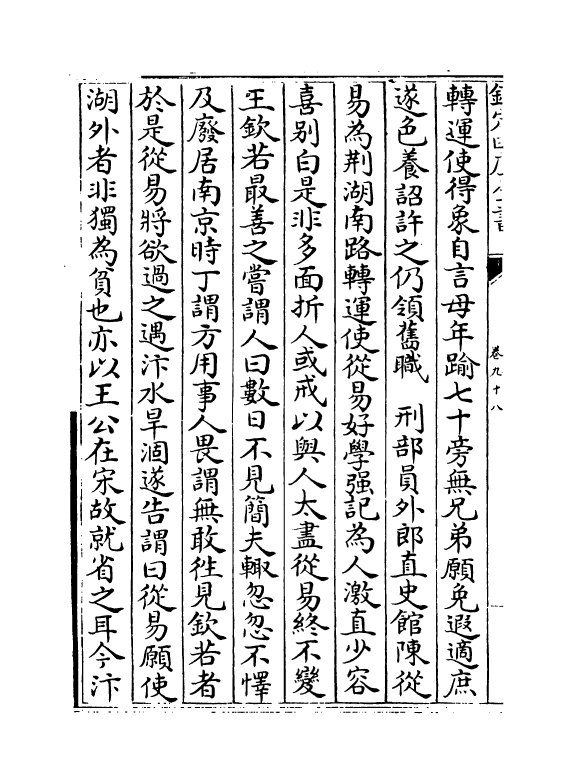 欽定四庫全書
卷九十八
轉運使得象自言母年踰七十旁無兄弟願免遐適庶
遂色養詔許之仍領舊職　刑部員外郎直史館陳從
易為荆湖南路轉運使從易好學强記為人激直少容
喜别白是非多面折人或戒以與人太盡從易終不變
王欽若最善之嘗謂人曰數日不見簡夫輙忽忽不懌
及廢居南京時丁謂方用事人畏謂無敢徃見欽若者
於是從易將欲過之遇汴水旱涸遂告謂曰從易願使
湖外者非獨為貧也亦以王公在宋故就省之耳今汴